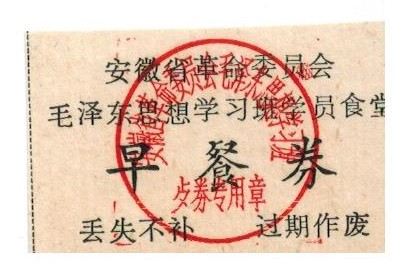 安徽省革命委员会
毛泽东思想学习班学员食堂
早餐券
歺券专用章
丢失不补 过期作废